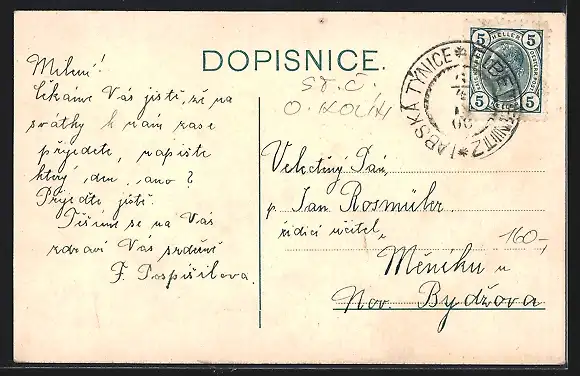 DOPISNICE.
ST. Č.
O. KOLÍN
5 HELLER 5
5 5
LABSKÁ TÝNICE * ELBETEINITZ *
Milení!
Čekáme Vás jistě, že na
svátky k nám zase
přijedete, napište
který den, ano?
Přijeďte jistě.
Těšíme se na Vás
zdraví Vás srdečně
F. Pospíšilova.
Velectěný Pán,
p. Jan Rosmühr.
řídící učitel,
160,-
Měníku u
Nov. Bydžova